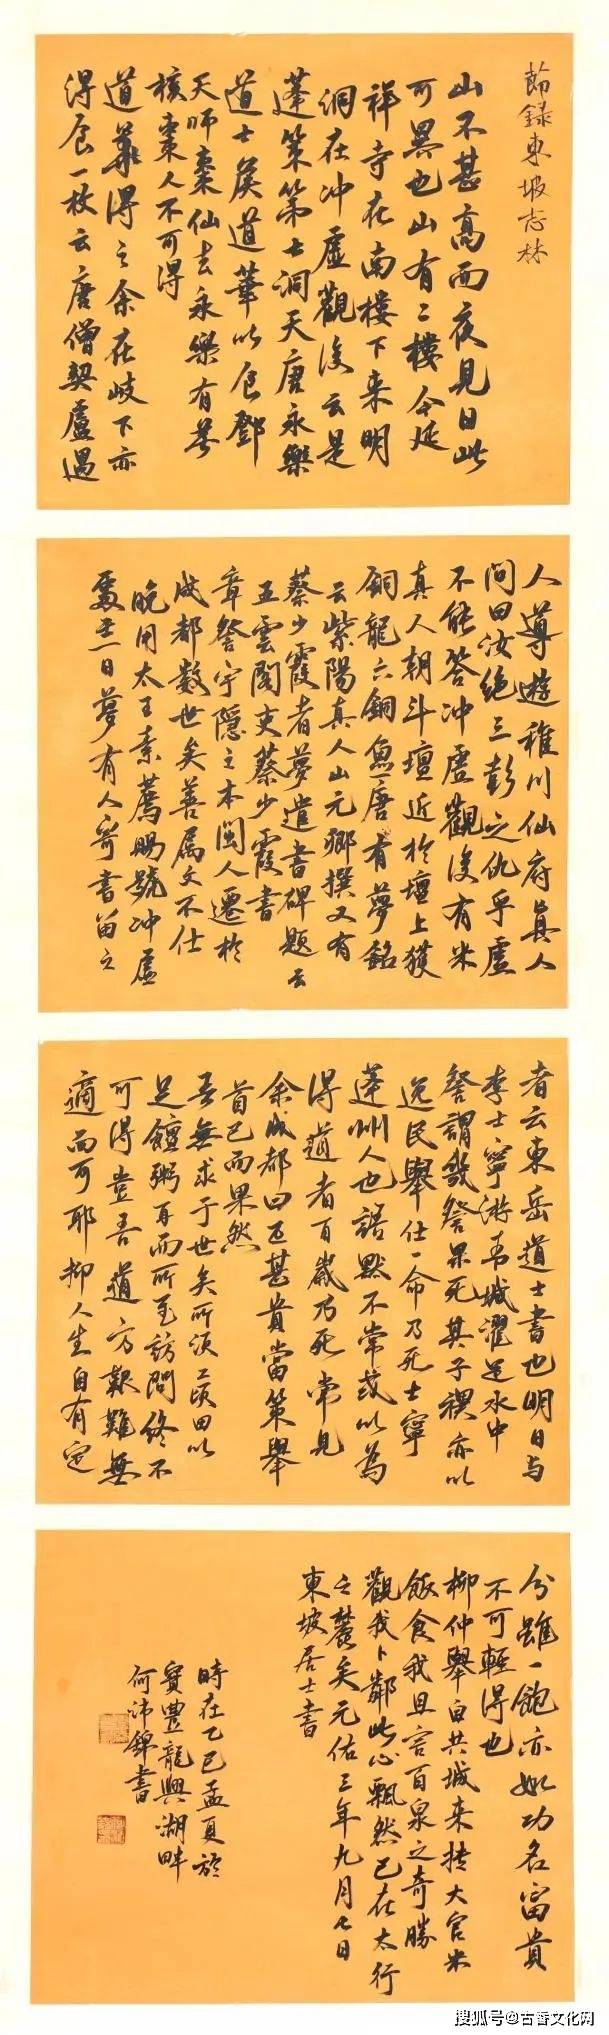 節録東坡志林
山不甚高而夜見日此
可異也山有二樓今延
祥寺在南樓下朱明
洞在冲虛觀後云是
蓬萊第七洞天唐永樂
道士侯道華以食鄧
天師棗仙去永樂有無
核棗人不可得
道華得之余在岐下亦
得食一枚云唐僧契虛遇
人導遊稚川仙府真人
問曰汝絶三彭之仇乎虛
不能答冲虛觀後有米
真人朝斗壇近於壇上獲
銅龍六銅魚一唐有夢銘
云紫陽真人山元卿撰又有
蔡少霞者夢遣書碑題云
五雲閣吏蔡少霞書
章詧字隱之本閩人遷於
成都數世矣善屬文不仕
晚用太王素薦賜號冲虛
處士一日夢有人寄書苗之
者云東岳道士書也明日与
李士寧游青城濯足水中
詧謂
詧果死其子禩亦以
逸民舉仕一命乃死士寧
蓬州人也語默不常或以為
得道者百歲乃死常見
余成都曰子甚貴當策舉
首已而果然
吾無求于世矣所須二頃田以
足饘粥耳而所至訪問終不
可得豈吾道方艱難無
適而可耶抑人生自有定
分雖一飽亦如功名富貴
不可輕得也
柳仲舉自共城來摶大官米
飯食我且言百泉之奇勝
觀我卜鄰此心飄然已在太行
之麓矣元佑三年九月七日
東坡居士書
時在乙巳孟夏於
寶豐龍興湖畔
何沛錦書
搜狐号@古香文化网